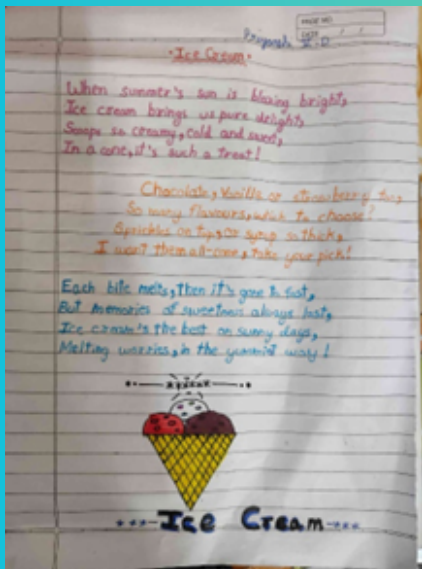 PAGE NO.
DATE / /
Priyansh V-D
Ice Cream
When summer's sun is blazing bright,
Ice cream brings us pure delight,
Scoops so creamy, cold and sweet,
In a cone, it's such a treat!
Chocolate, Vanilla or strawberry too,
So many flavours, which to choose?
Sprickles on top, or syrup so thick,
I want them all-come, take your pick!
Each bite melts, then it's gone to fast,
But memories of sweetness always last,
Ice cream's the best on sunny days,
Melting worries, in the yummist way!
Ice Cream